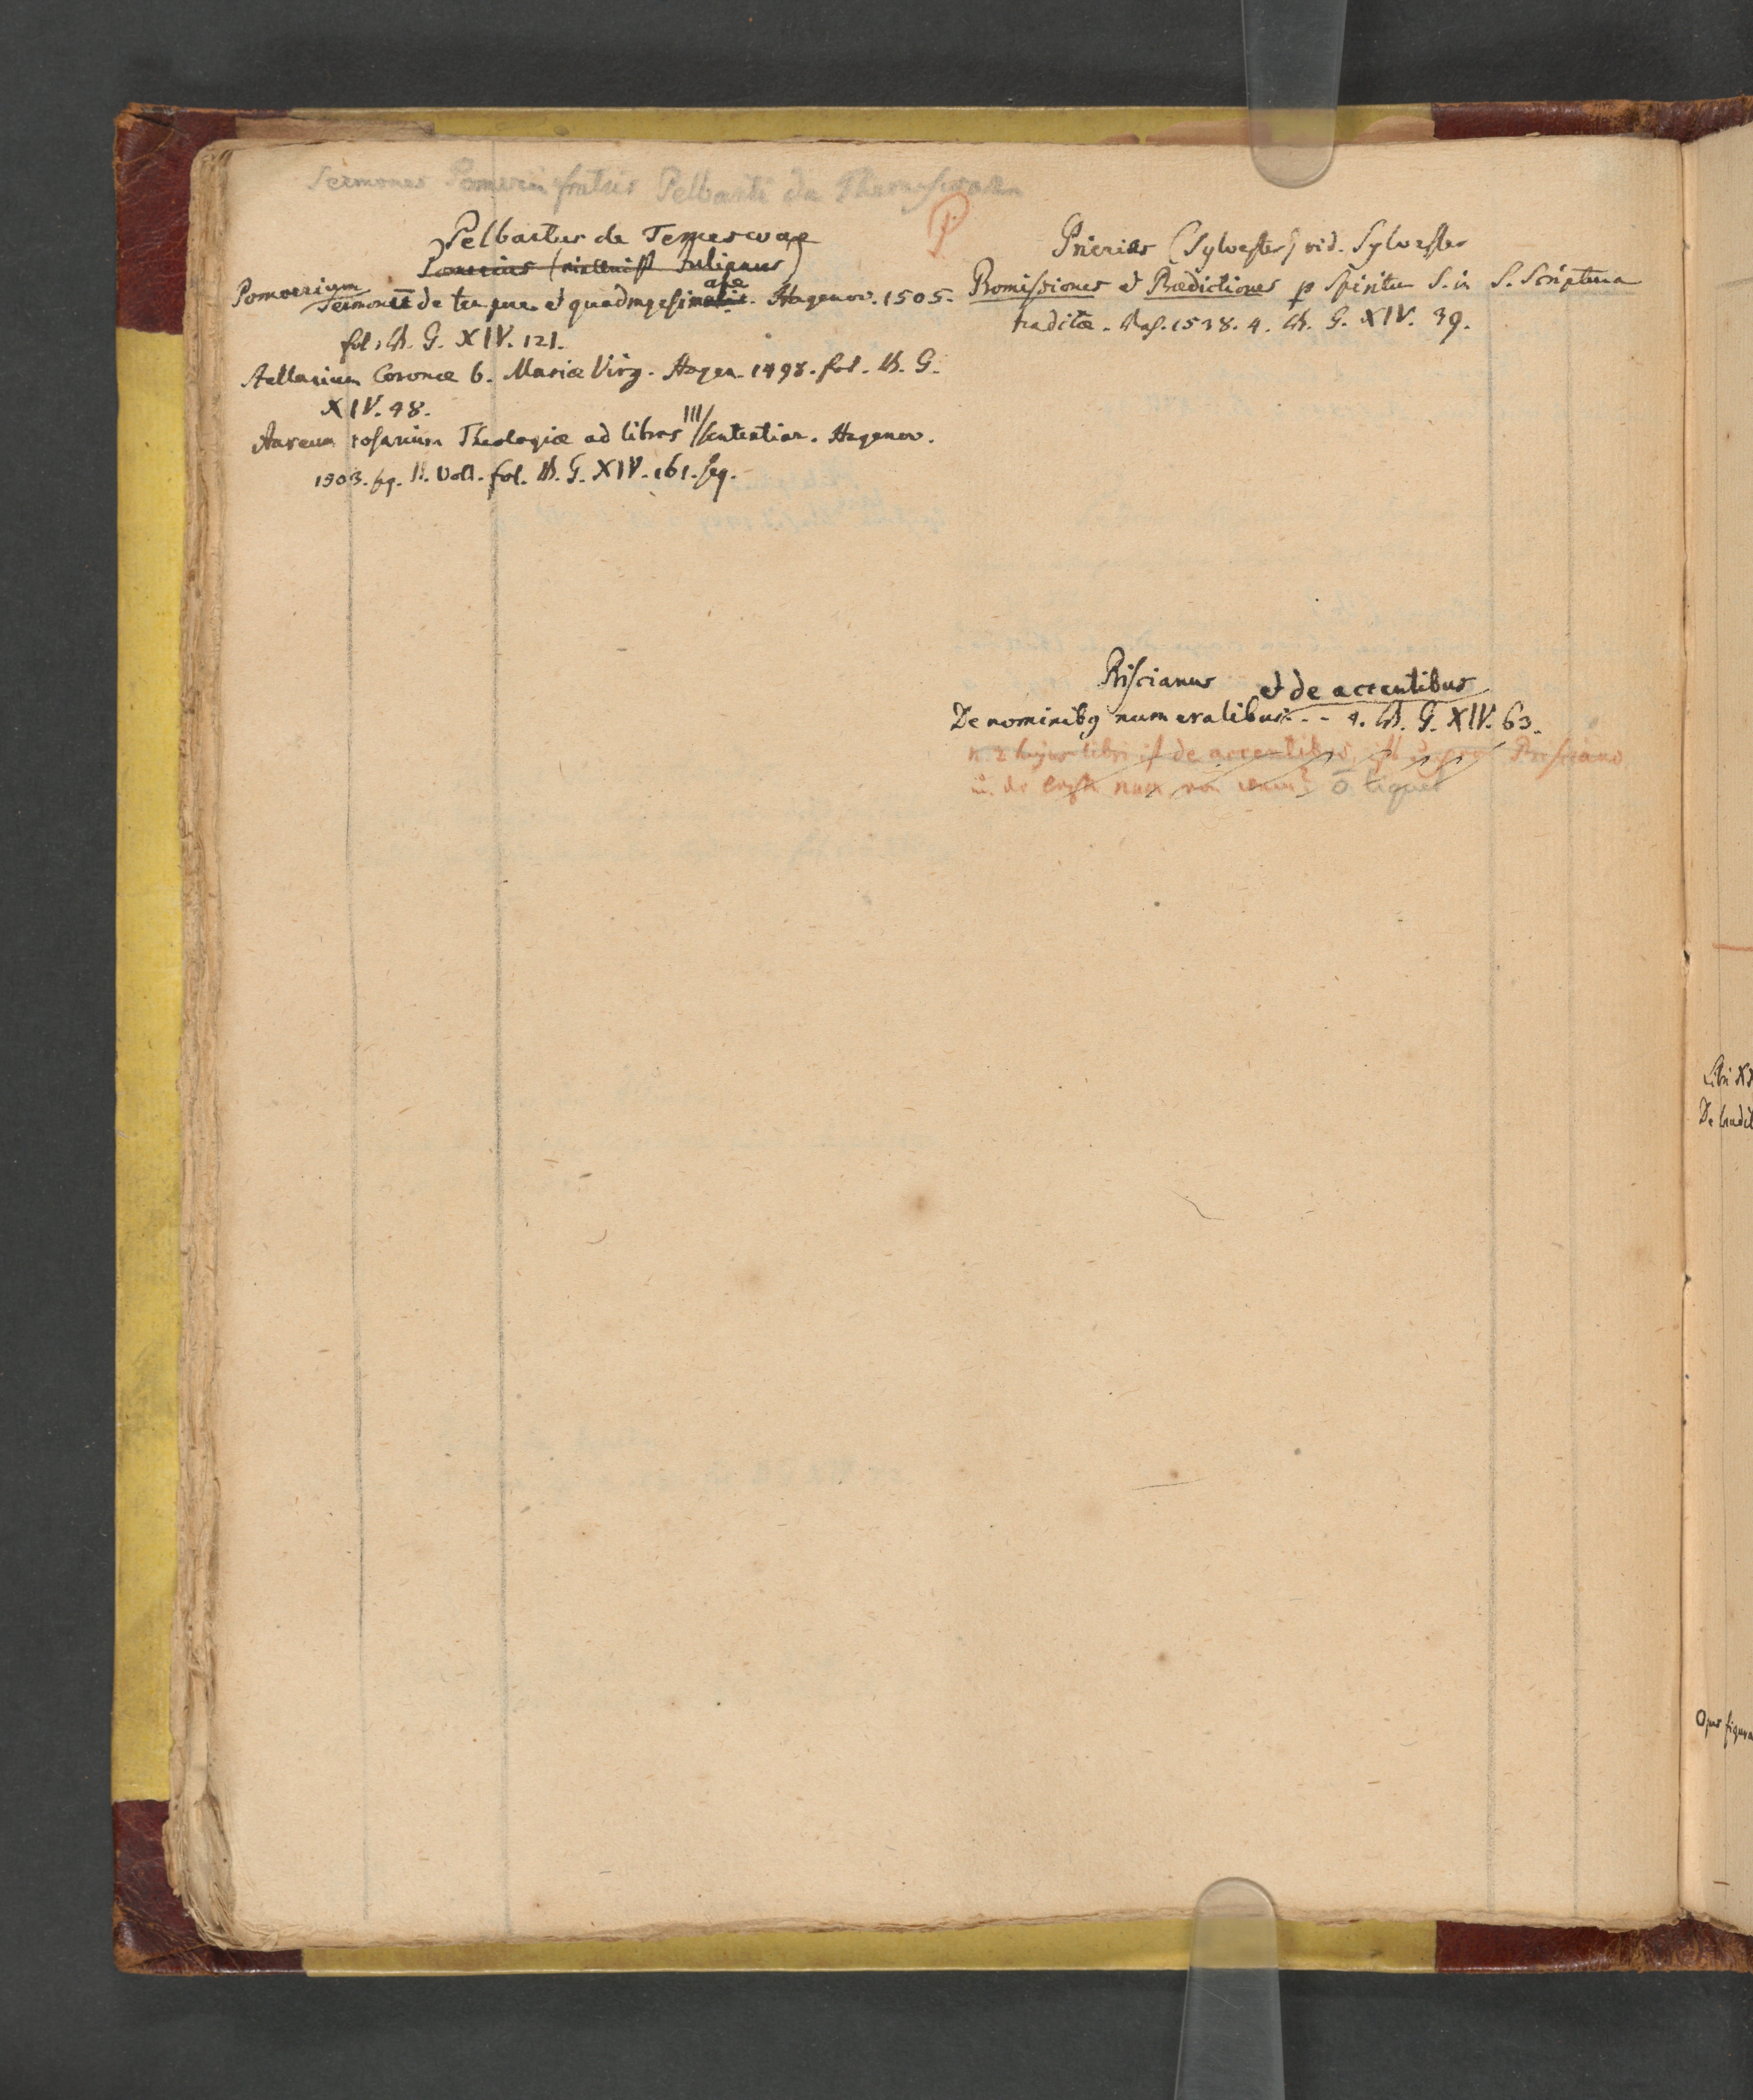 Sermones Pomerii fratris Pelbarti de Themeswar
P
Pelbartus de Temeswar
Pomerius Julianus)
Pomoerium
Sermones de tempore et quadragesimale. Hagenov. 1505.
fol. Th. G. XIV. 121.
Stellarium Coronae b. Mariae Virg. Hagen. 1498. fol. Th. G.
XIV. 48.
Aureum rosarium Theologiae ad libros III sententiar. Hagenov.
1503. sq. II. Voll. fol. Th. G. XIV. 161. seq.
Prierias (Sylvester) vid. Sylvester
Promissiones et Praedictiones p Spiritu S. in S. Scriptura
traditae. 1538. 4. Th. G. XIV. 39.
Priscianus
et de accentibus
De nominibg numeralibus - - 4. Th. G. XIV. 63.
n. 2 hujus libri de accentibus Prisciano
liquet
Libri XX
De tradit
Opus figura